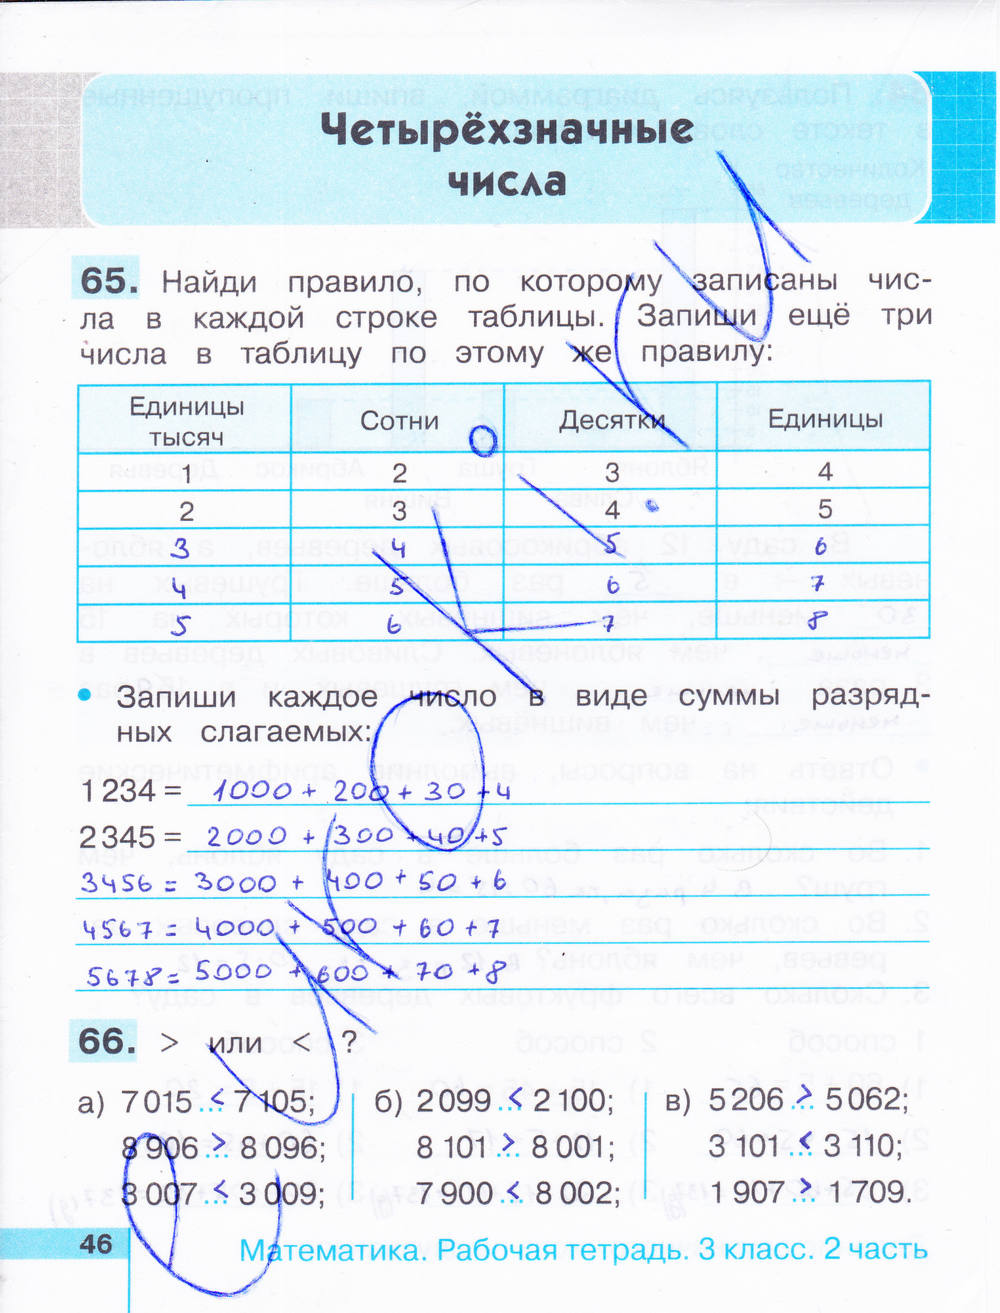 Четырёхзначные
числа
65. Найди правило, по которому записаны чис-
ла в каждой строке таблицы. Запиши ещё три
числа в таблицу по этому же правилу:
Единицы тысяч Сотни Десятки Единицы
1 2 3 4
2 3 4 5
3 4 5 6
4 5 6 7
5 6 7 8
• Запиши каждое число в виде суммы разряд-
ных слагаемых:
1 234 = 1000 + 200 + 30 + 4
2 345 = 2000 + 300 + 40 + 5
3456 = 3000 + 400 + 50 + 6
4567 = 4000 + 500 + 60 + 7
5678 = 5000 + 600 + 70 + 8
66. > или < ?
а) 7 015 < 7 105; б) 2 099 < 2 100; в) 5 206 > 5 062;
8 906 > 8 096; 8 101 > 8 001; 3 101 < 3 110;
3 007 < 3 009; 7 900 < 8 002; 1 907 > 1 709.
46 Математика. Рабочая тетрадь. 3 класс. 2 часть